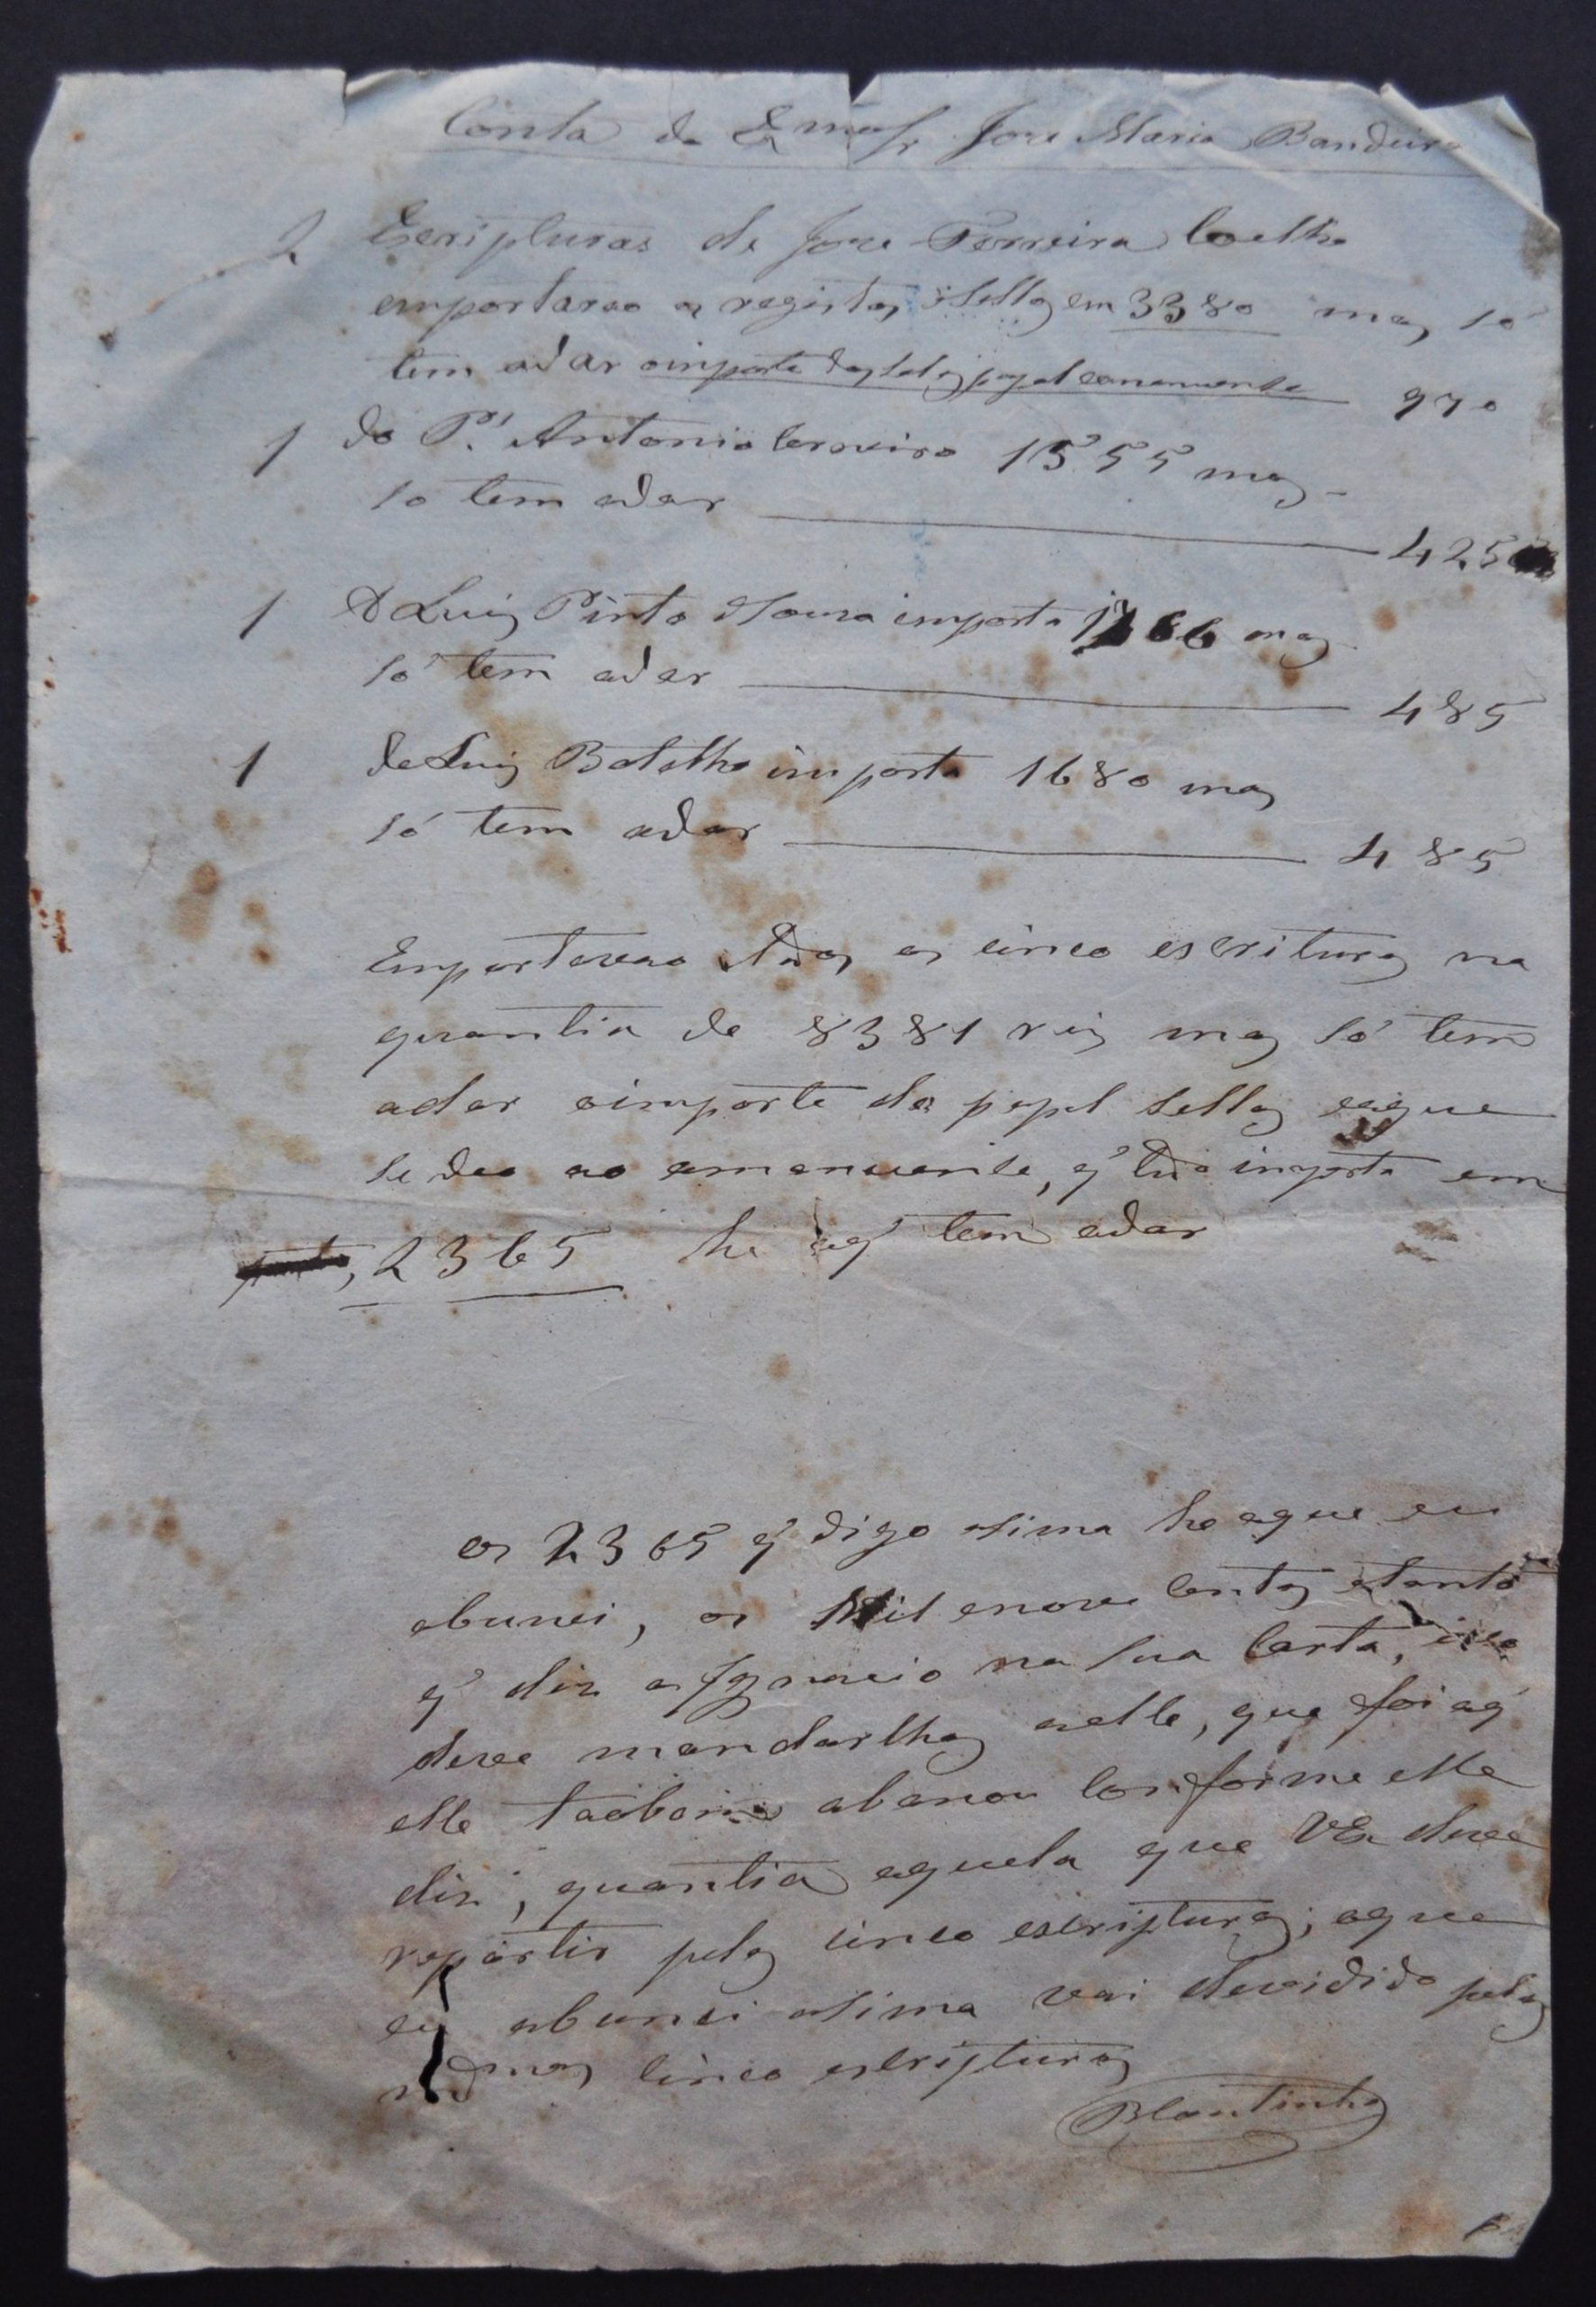 Conta do Exmo Sr Joze Maria Bandeira
2 Escripturas de Joze Ferreira Coelho
emportarao os registos, sellos em 3380 mas só
tem adar oimporte dos sellos papel eamanuense 970
1 do Pe Antonio 1555 mas
so tem adar 425
1 D Luis Pinto Souza importa 1766 mas
só tem adar 485
1 de Luis Botelho importa 1680 mas
só tem adar 485
Emportarao tdas as cinco escrituras na
quantia de 8381 reis mas só tem
adar oimporte do papel sellos eoque
se deo ao amanuense, q' tudo importa em
2365 he oq' tem adar
os 2365 q' digo asima he oque eu
abunei, os Mil enove centos etantos
q' diz o Ignacio na sua Carta,
deve mandarlhos aelle, que foi oq'
elle taobem abonou conforme elle
diz, quantia aquela que VEx deve
repartir pelas cinco escripturas; oque
eu abunei asima vai devidido pelas
mesmas cinco escripturas
BCoutinho